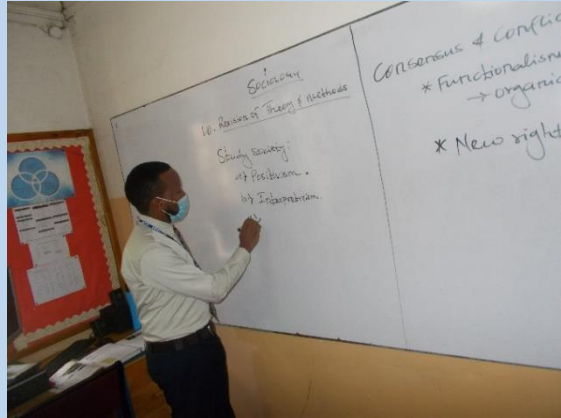 Sociology
1.0. Revision of Theory & methods
Study society:
a) Positivism.
b) Interpretivism
Consensus & Conflic
* Functionalism
→ organic
* New right